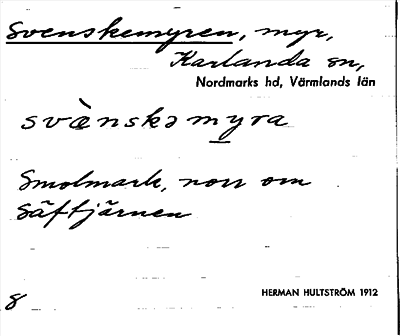 Svenskemyren, myr,
Karlanda sn,
Nordmarks hd, Värmlands län
svænskə myra
Smolmark, norr om
Säftjärnen
8
HERMAN HULTSTRÖM 1912